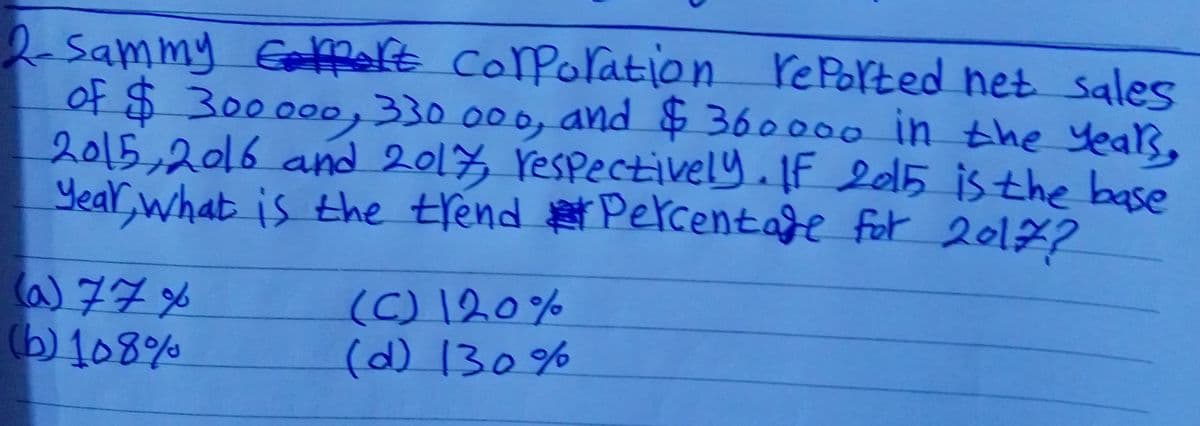 2- Sammy corporation reported net sales
of $ 300 000, 330 000, and $ 360000 in the years,
2015, 2016 and 2017, respectively. IF 2015 is the base
year, what is the trend Percentage for 2017?
(a) 77 % (C) 120%
(b) 108% (d) 130%